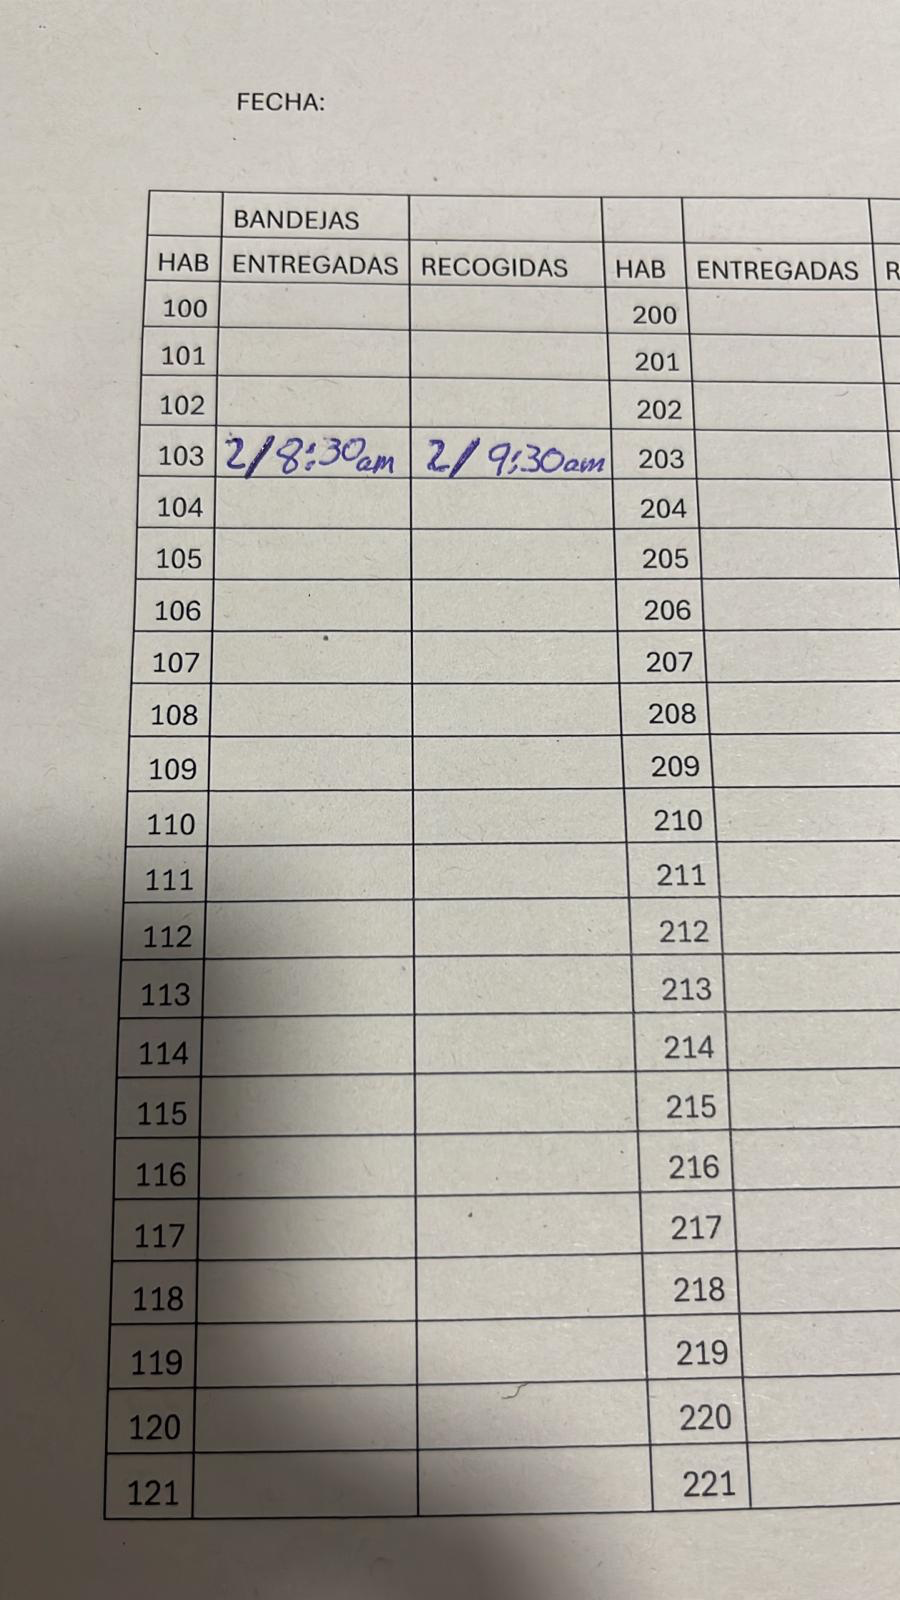 FECHA:
BANDEJAS
HAB ENTREGADAS RECOGIDAS HAB ENTREGADAS R
100 200
101 201
102 202
103 2/8:30am 2/9:30am 203
104 204
105 205
106 206
107 207
108 208
109 209
110 210
111 211
112 212
113 213
114 214
115 215
116 216
117 217
118 218
119 219
120 220
121 221